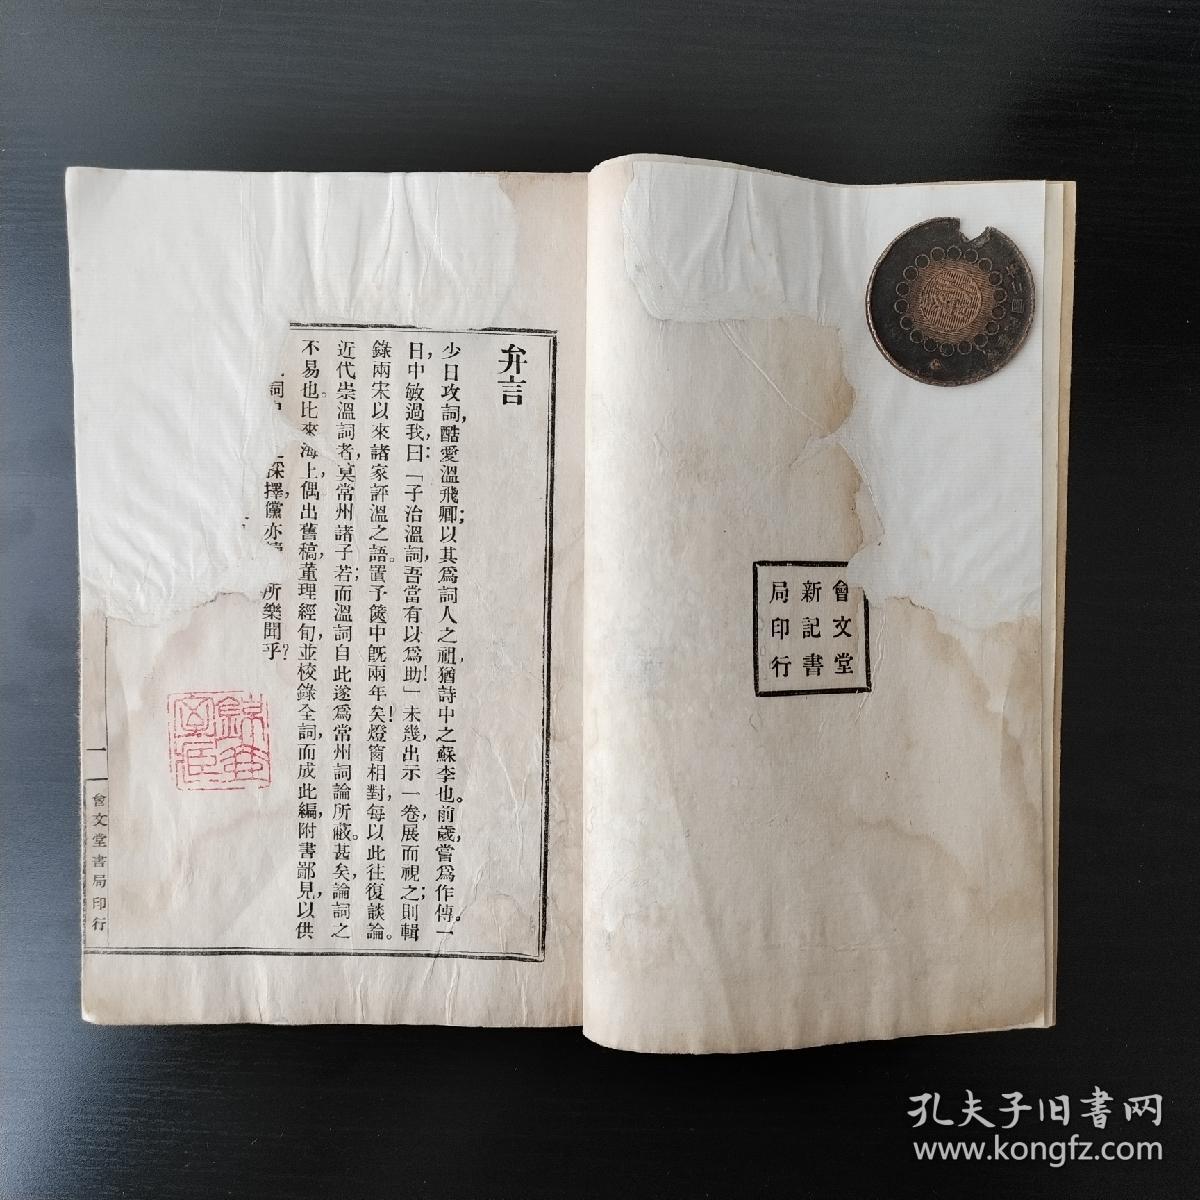 會文堂
新記書
局印行
弁言
少日攻詞,酷愛溫飛卿;以其爲詞人之祖,猶詩中之蘇李也。前歲,嘗爲作傳。一
日,中敏過我,曰:「子治溫詞,吾當有以爲助!」未幾,出示一卷,展而視之;則輯
錄兩宋以來諸家評溫之語。置予篋中旣兩年矣!燈窗相對,每以此往復談論。
近代崇溫詞者,莫常州諸子若;而溫詞自此遂爲常州詞論所蔽。甚矣,論詞之
不易也。比來海上,偶出舊稿,董理經旬,並校錄全詞,而成此編,附書鄙見,以供
詞
採擇,儻亦
所樂聞乎?
一
會文堂書局印行
孔夫子旧書网
www.kongfz.com